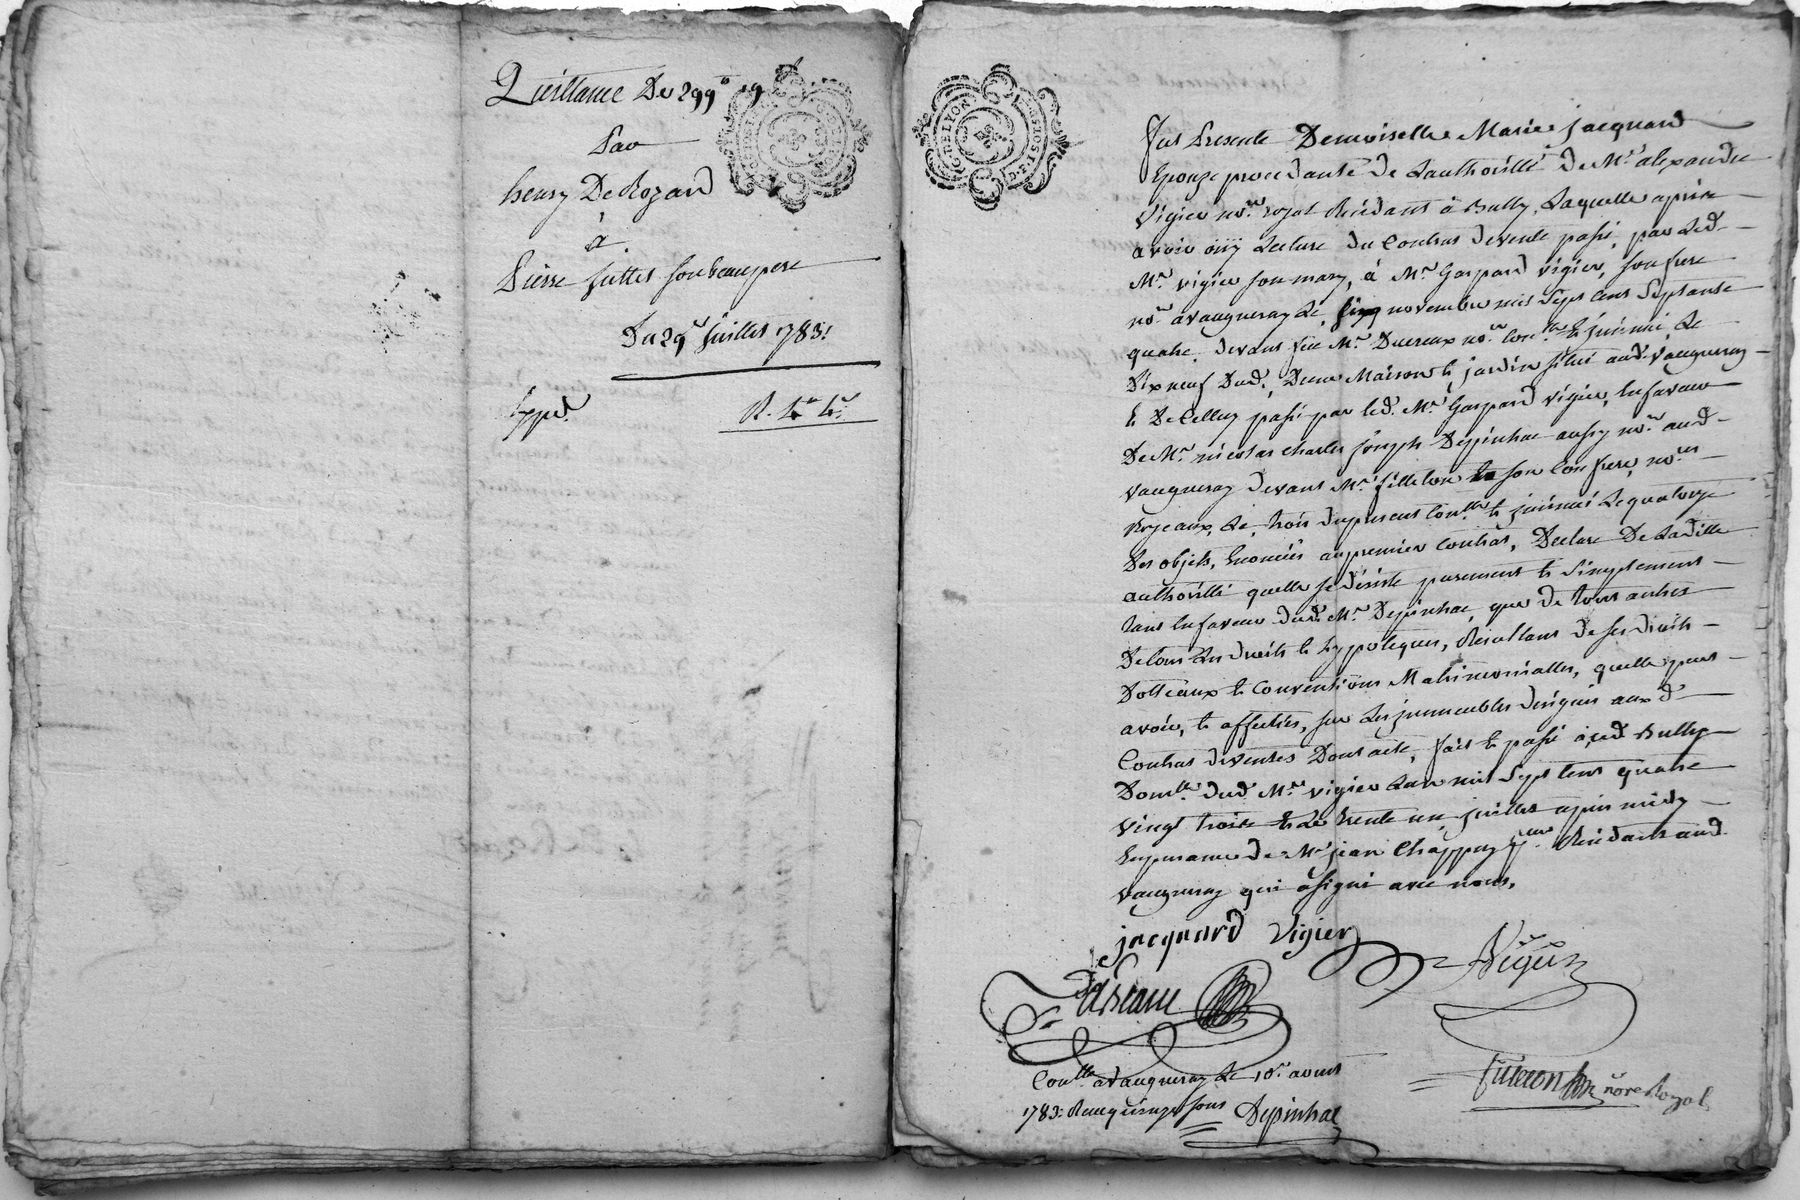 Quittance De 299 # 19 s
Par
henry De Rozard
à
Pierre futtet son beaupere
Du 29e juillet 1783.
Exped.
GT. DE LYON
Fut Presente Demoiselle Marie jacquard
Epouze procedante de Lauthorité De Mr. alexandre
Vigier nore. royal Residant à Bully, Laquelle après
avoir ouy Lecture du Contrat de vente passé, par Led.
Mr. vigier son mary, à Mr. Gaspard vigier, son frere
nore. a vaugneray Le cinq novembre mil Sept Cent Septante
quatre. devant feu Mr. Ducreux nore. Conlle. & insinué Le
Dix neuf Dud. Dune Maison & jardin situé aud. vaugneray
& De Celluy passé par led. Mr. Gaspard vigier, en faveur
De Mr. nicolas charles joseph Depinhac aussy nore. aud.
vaugneray devant Mr. fillion & son Confrere, nores.
Royeaux, Le trois du present Conlle. & insinué Le quatorze
Des objets, Enoncés au premier Contrat, Declare De Ladille
authorité quelle se désiste purement & Simplement
tant en faveur dud. Mr. Depinhac, que de tous autres
De tous Les droits & hypoteques, Resultans de ses droits
Dotteaux & Conventions Matrimonialles, quelle peut
avoir, & affectés, sur Les jmmeubles designés aux d.
Contrats de ventes Dont acte, fait & passé aud. Bully
Domlle. dud. Mr. vigier Lan mil Sept Cent quatre
vingt trois & Le trente un juillet après midy
En presence de Mr. jean Chappuy Residant aud.
vaugneray qui a signé avec nous.
jacquard Vigier
Vigier
Conlle. a vaugneray Le 10e. aoust
1783. Reçu quinze sous Depinhac
nore Royal